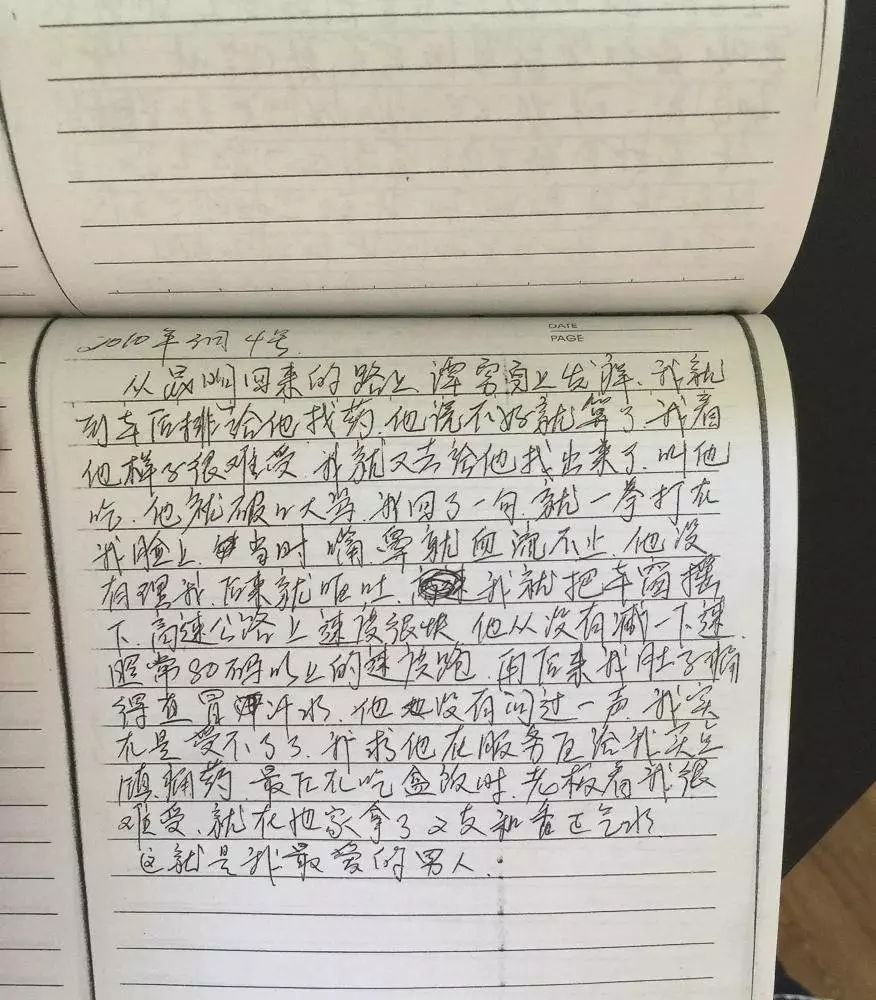 DATE
PAGE
2010年3月4号
从 回来的路上谭 上发 .我就
到车后排给他找药.他说不好就算了.我看
他样子很难受.我就又去给他找出来了.叫他
吃.他就破口大骂.我回了一句.就一拳打在
我脸上. 当时嘴.鼻就血流不止.他没
有理我.后来就呕吐. 我就把车窗摇
下.高速公路上速度很快.他从没有减一下速.
照常80码以上的速度跑.再后来我肚子痛
得直冒 汗水.他 没有问过一声.我实
在是受不了了.我求他在服务区给我买点
镇痛药.最后在吃盒饭时.老板看我很
难受.就在他家拿了2支和香正气水
这就是我最爱的男人.